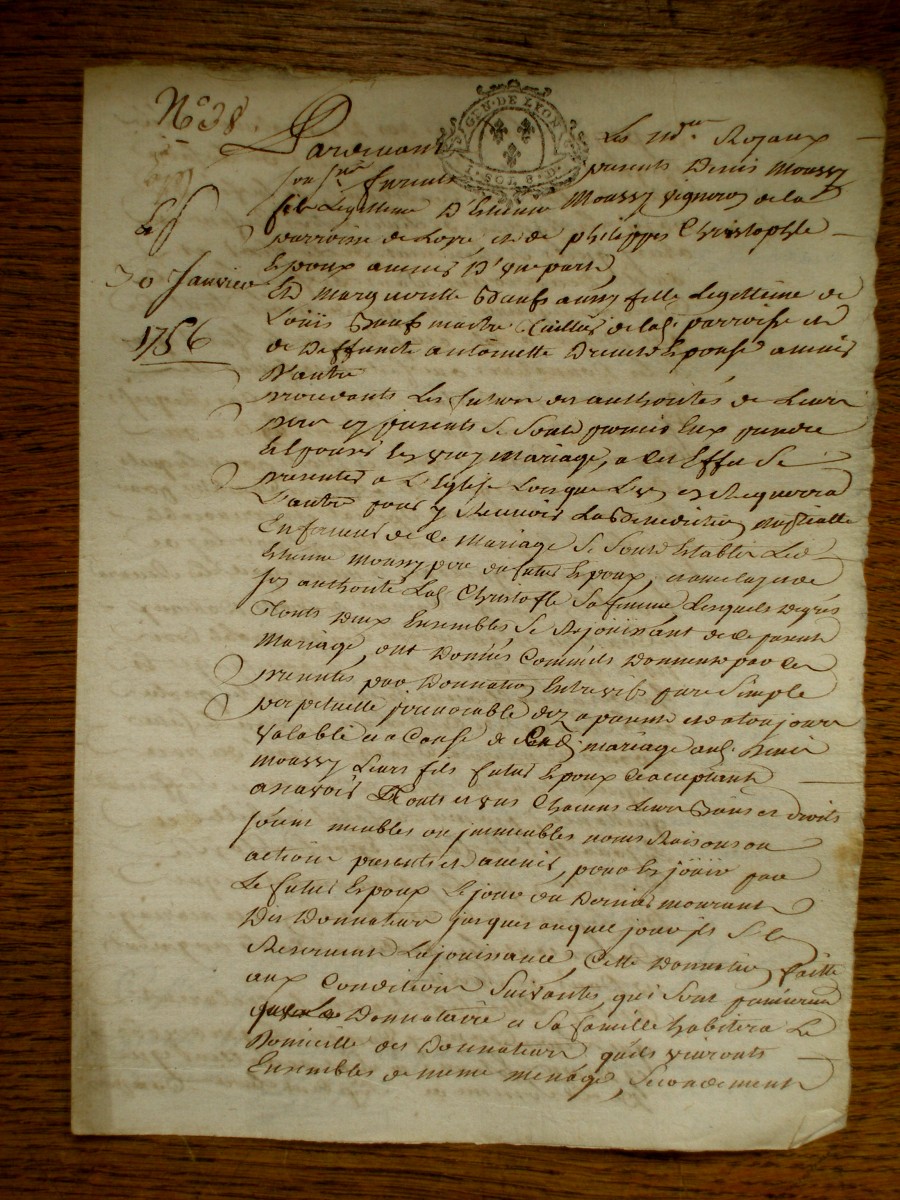 N° 38
GEN. DE LYON
1. SOL 8. D.
Pardevant Les n.res Royaux
son presents Denis Moussy
fils Legittime D'Etienne Moussy vigneron de la
parroisse de Loyre, et de philippes Christophle
Epoux avenir D'une part,
30 Janvier
Et Margueritte aussy fille Legittime de
Loüis maitre de lad. parroisse et
1756
de Deffuncte antoinette Epouse avenir
D'autre
procedants Les futurs des authorités de Leurs
pere et parents se sont promis Eux prendre
Et Epouser En vray Mariage, a cet Effet se
presenter a L'Eglise Lorsque L'un En Requerera
L'autre pour y Recevoir La Benediction nuptialle
En faveur de ce Mariage se sont Etablis Led.
Etienne Moussy pere du futur Epoux, et de
son authorité Lad. Christofle sa femme Lesquels de gré
touts deux Ensembles se Rejoüissant de ce present
Mariage, ont Donnés Comme ils Donnent par ces
presentes par Donnation Entre vifs pure simple
perpetuelle jrrevocable dez a present et a toujours
valable et a Cause de Ced. mariage aud. Denis
Moussy Leurs fils futur Epoux acceptant
assavoir touts et uns Chacuns Leurs Biens et droits
soient meubles ou jmmeubles noms Raisons ou
actions presents et avenir, pour En joüir par
Le futur Epoux Le jour du Dernier mourant
Des Donnateurs jusques auquel jour jls se
Reservent La joüissance, Cette Donnation faitte
aux Conditions suivantes, qui sont premierement
que Le Donnataire et sa famille habitera Le
Domicille des Donnateurs qu'ils vivront
Ensembles de meme menage, secondement